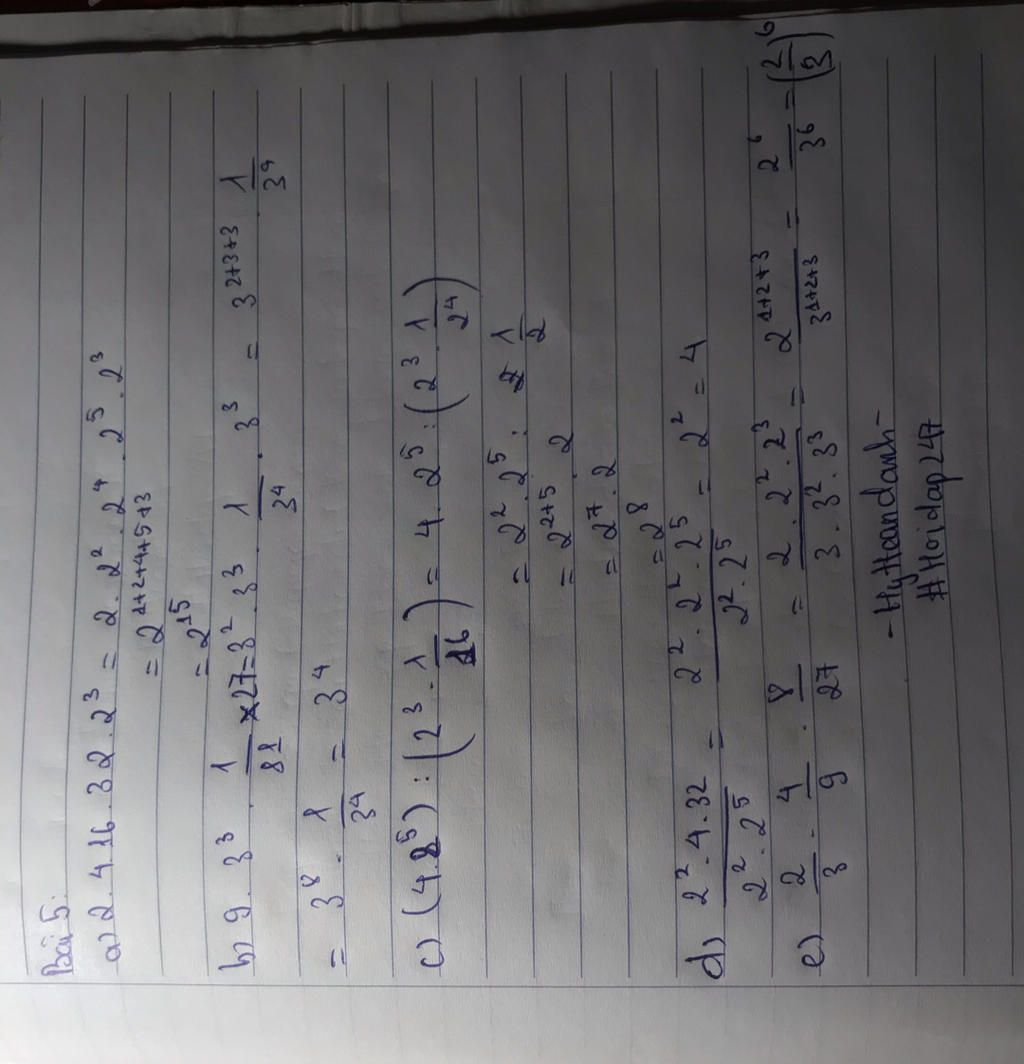 Bài 5:
a) 2 . 4 . 16 . 32 . 2³ = 2 . 2² . 2⁴ . 2⁵ . 2³
= 2¹⁺²⁺⁴⁺⁵⁺³
= 2¹⁵
b) 9 . 3³ . 1/81 × 27 = 3² . 3³ . 1/3⁴ . 3³ = 3²⁺³⁺³ . 1/3⁴
= 3⁸ . 1/3⁴ = 3⁴
c) (4.2⁵) : (2³ . 1/16) = 4 . 2⁵ : (2³ . 1/2⁴)
= 2² . 2⁵ : 1/2
= 2²⁺⁵ . 2
= 2⁷ . 2
= 2⁸
d) 2² . 4 . 32 / 2² . 2⁵ = 2² . 2² . 2⁵ / 2² . 2⁵ = 2² = 4
e) 2/3 . 4/9 . 8/27 = 2 . 2² . 2³ / 3 . 3² . 3³ = 2¹⁺²⁺³ / 3¹⁺²⁺³ = 2⁶/3⁶ = (2/3)⁶
#Hoidap247